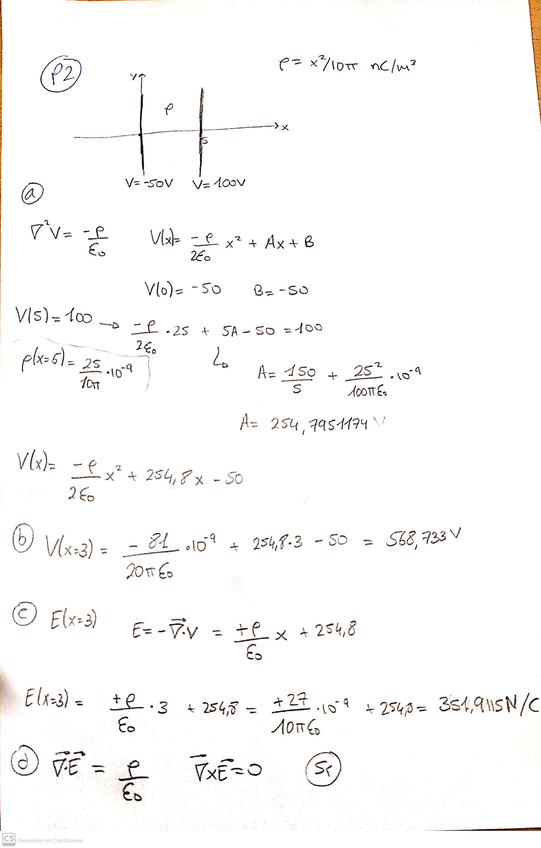 P2
ρ = x²/10π nC/m³
y
ρ
x
5
V=-50V V=100V
a
∇²V = -ρ/ε₀ V(x)= -ρ/2ε₀ x² + Ax + B
V(0)= -50 B=-50
V(5)=100 → -ρ/2ε₀ ·25 + 5A - 50 = 100
ρ(x=5)= 25/10π ·10⁻⁹ ↳ A= 150/5 + 25²/100πε₀ ·10⁻⁹
A= 254,7951174 V
V(x)= -ρ/2ε₀ x² + 254,8x - 50
b V(x=3) = -81/20πε₀ ·10⁻⁹ + 254,8·3 - 50 = 568,733 V
c E(x=3) E=-∇·V = +ρ/ε₀ x + 254,8
E(x=3) = +ρ/ε₀ ·3 + 254,8 = +27/10πε₀ ·10⁻⁹ + 254,8 = 351,9115 N/C
d ∇·E = ρ/ε₀ ∇×E=0 Sí
CS Escaneado con CamScanner